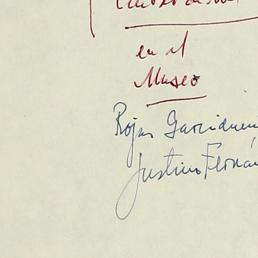 en el
Museo
Rojas Garcidueñ
Justino Fernán